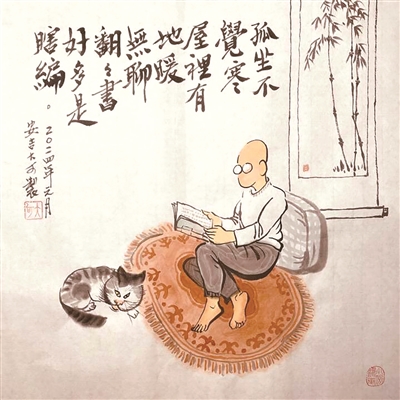 孤坐不
覺寒
屋裡有
地暖
無聊
翻々書
好多是
瞎編。
二〇二四年元月